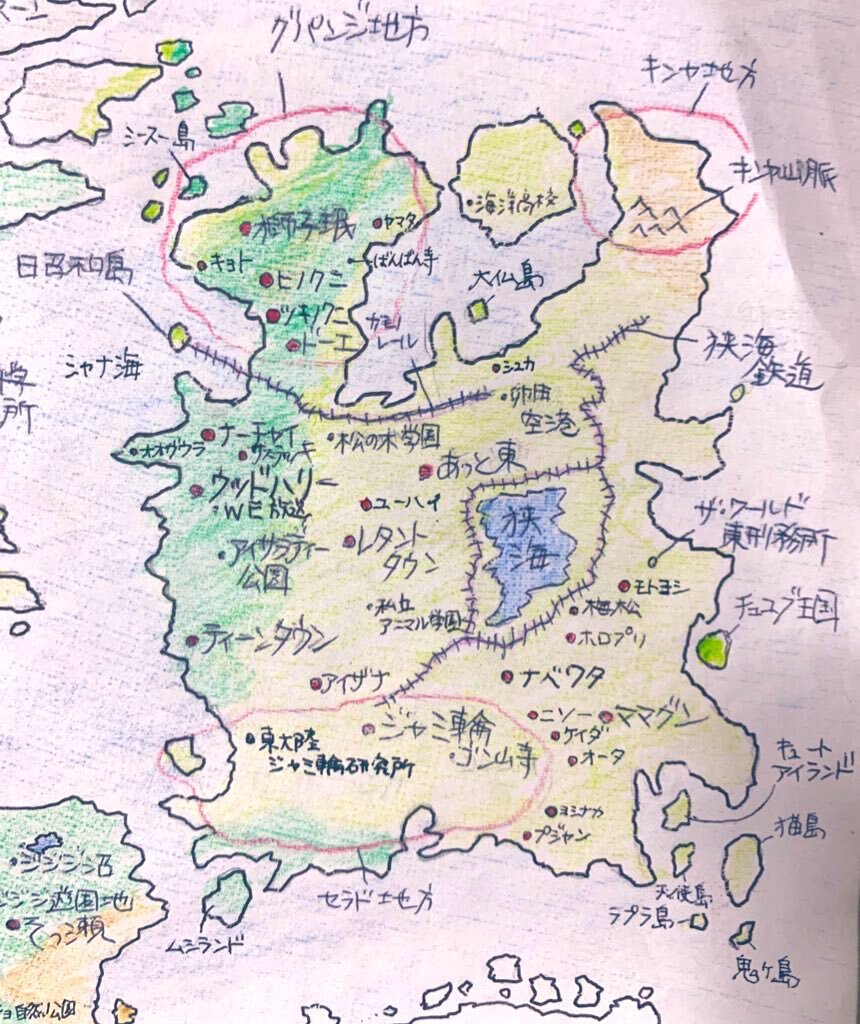 グリパンジ地方
キンヤ地方
シースー島
キンヤ山脈
獅子珉
ヤマタ
海洋高校
キヨト
ばんばん寺
日召和島
ヒノクニ
大仏島
ツキノクニ
ドーエ
レール
シャナ海
シュカ
狭海
鉄道
卵田
空港
所
ナーエャイ
松の木学園
オオヴウラ
あっと東
ウッドハリー
WE放送
ユーハイ
狭
海
ザ・ワールド
東刑務所
レタント
タウン
アイサラティー
公園
モトヨシ
私立
アニマル学園
梅松
チュユブ王国
ティーンタウン
ホロプリ
アイザナ
ナベワタ
ジャミ輪
ニソー
ママグン
東大陸
ジャミ輪研究所
ゴン山寺
ケイダ
オータ
キュート
アイランド
ヨシナカ
プジャン
猫島
ジジジジ沼
ジジ遊園地
セラド地方
天使島
ラプラ島
そっ瀬
ムシランド
鬼ヶ島
自然公園